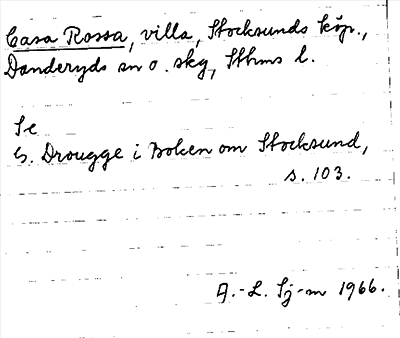 Casa Rossa, villa, Stocksunds köp.,
Danderyds sn o. skg, Sthms l.
Se
G. Drougge i Boken om Stocksund,
s. 103.
A.-L. Sj-m 1966.